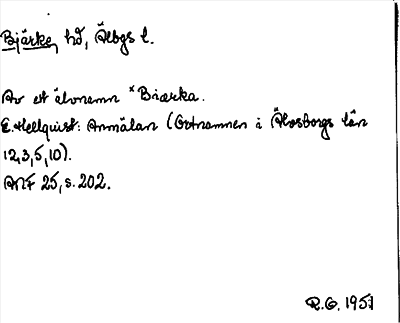 Bjärke, hd, Älvbgs l.
Av ett älvnamn *Biærka.
E. Hellquist: Anmälan (Ortnamnen i Älvsborgs län
12,3,5,10).
ANF 25, s. 202.
R.G. 1957